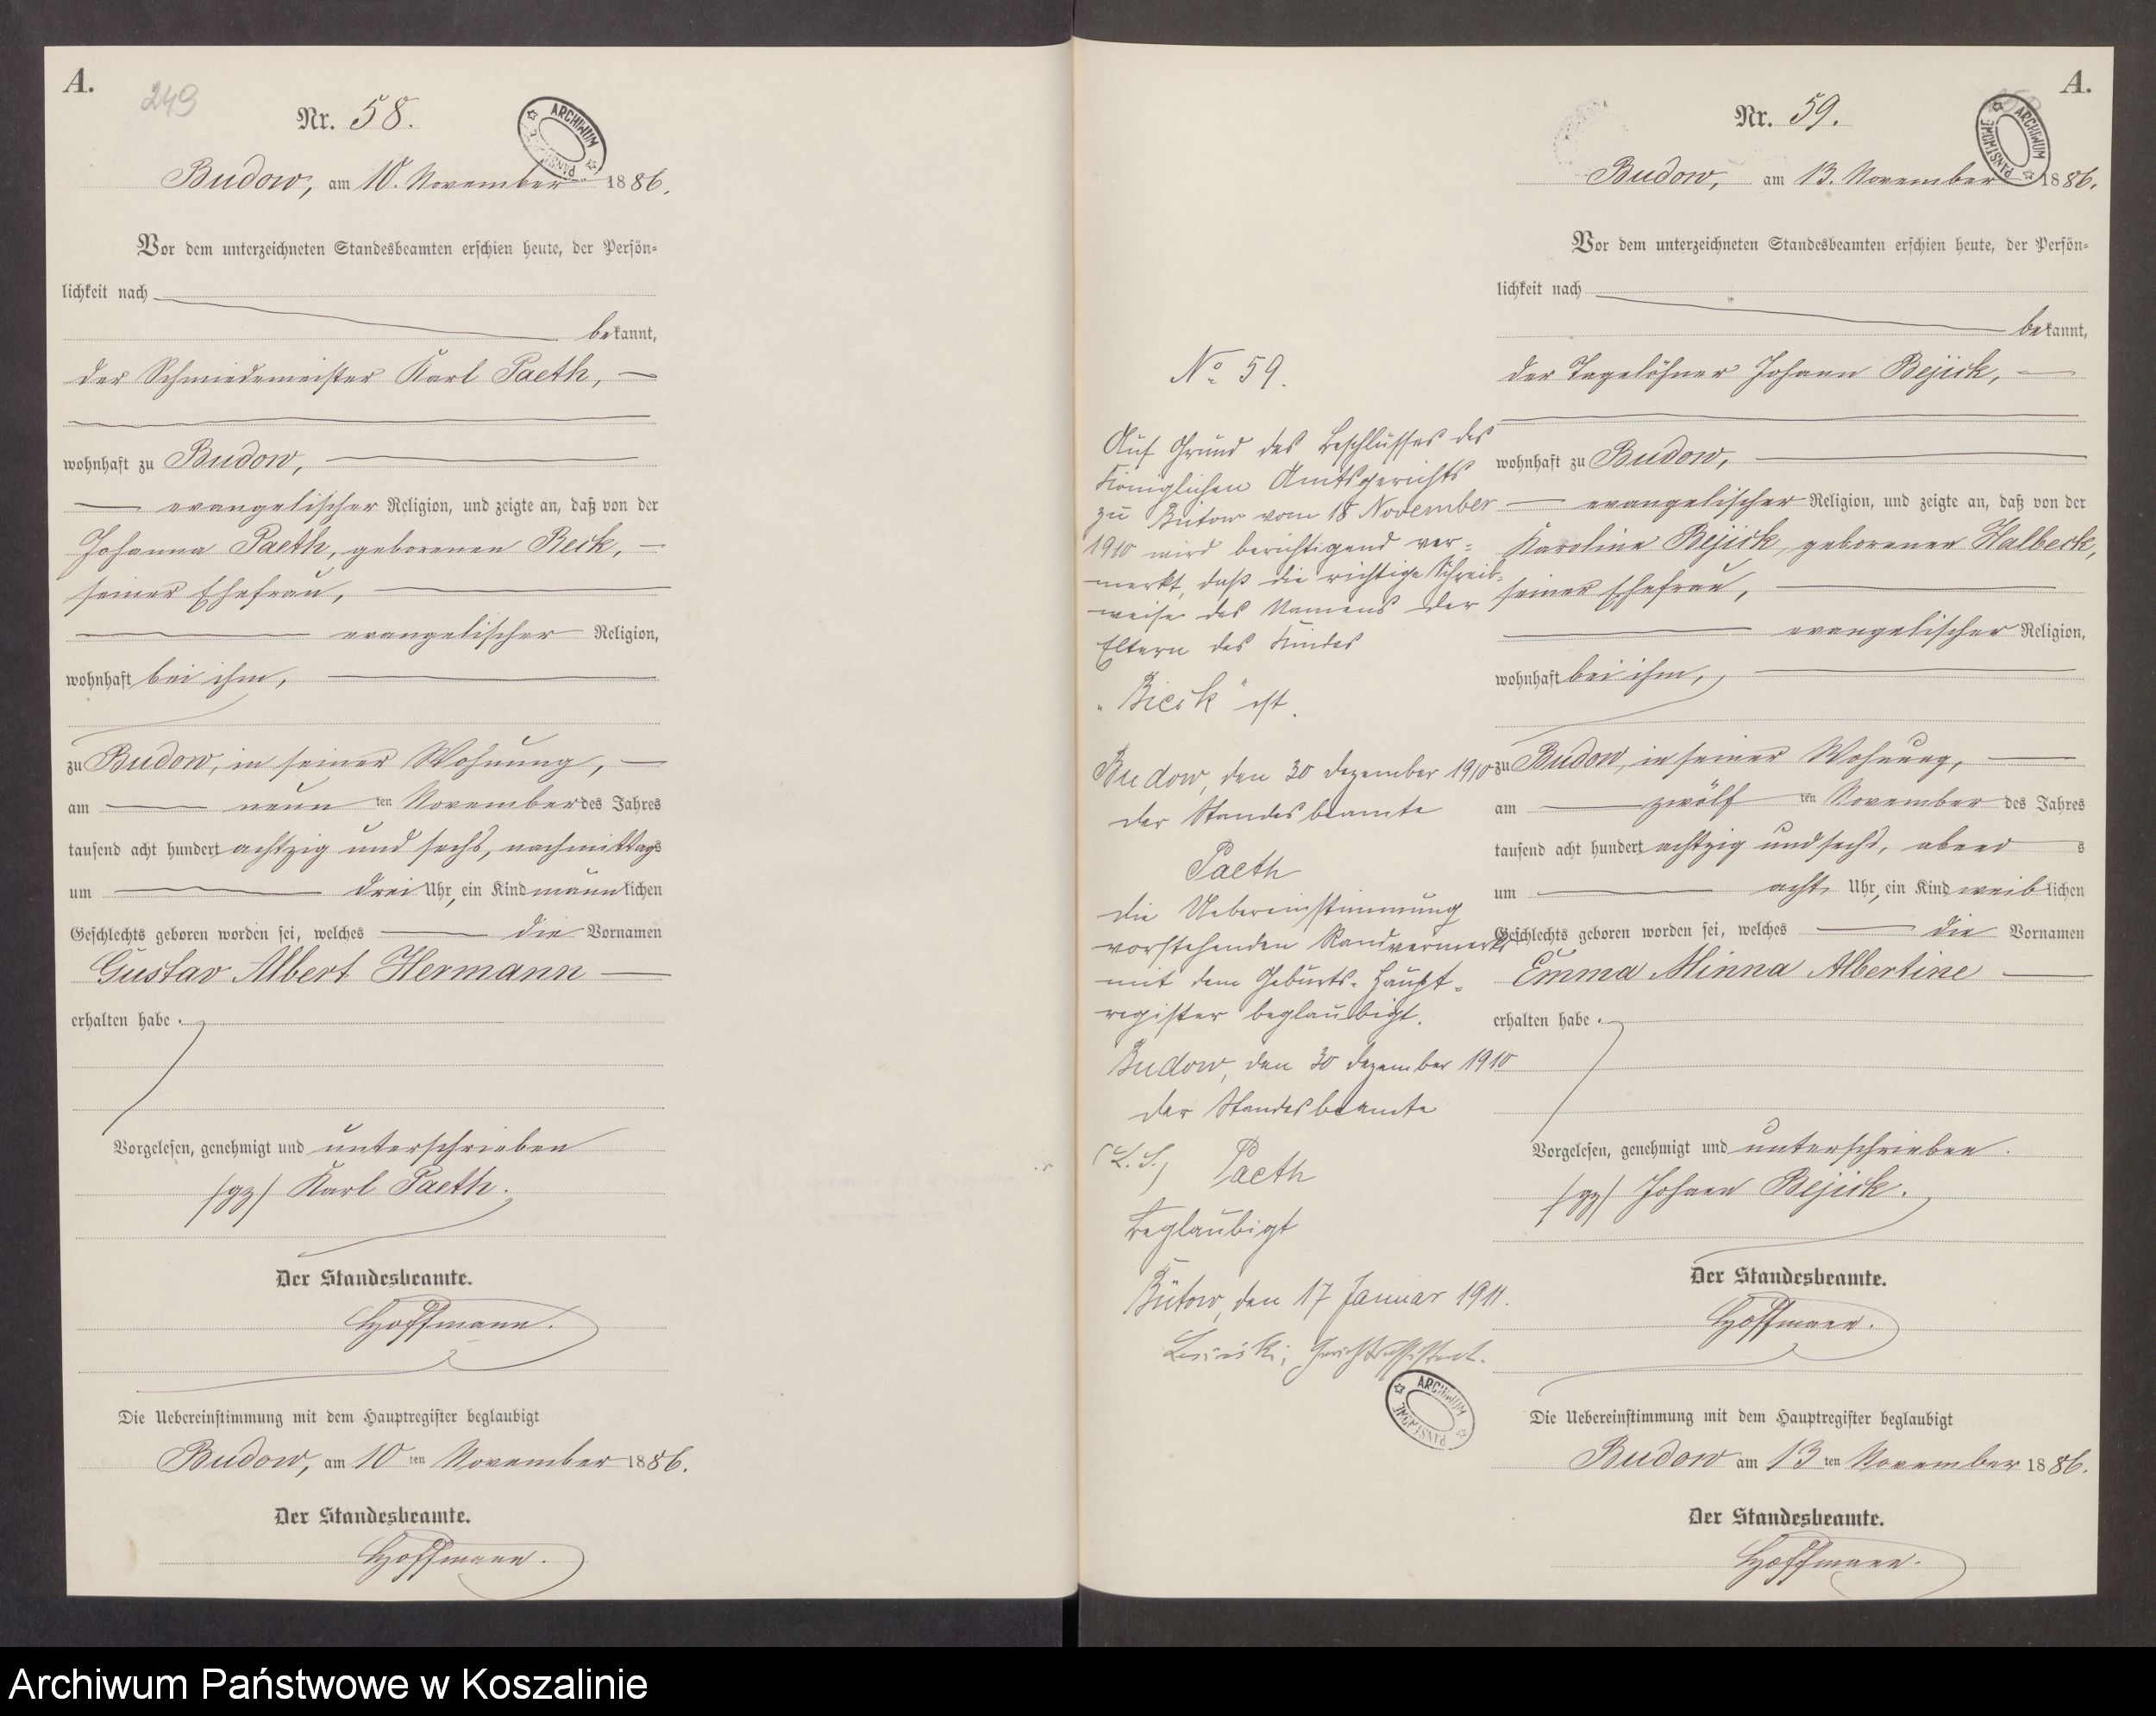 A.
249
Nr. 58.
ARCHIWUM PAŃSTW
Budow, am 10. November 1886.
Vor dem unterzeichneten Standesbeamten erschien heute, der Persön=
lichkeit nach
bekannt,
der Schmiedemeister Karl Paeth,
wohnhaft zu Budow,
evangelischer Religion, und zeigte an, daß von der
Johanna Paeth, geborenen Reck,
seiner Ehefrau,
evangelischer Religion,
wohnhaft bei ihm,
zu Budow, in seiner Wohnung,
am neun ten November des Jahres
tausend acht hundert achtzig und sechs, nachmittags
um drei Uhr, ein Kind männlichen
Geschlechts geboren worden sei, welches die Vornamen
Gustav Albert Hermann
erhalten habe.
Vorgelesen, genehmigt und unterschrieben
/gz/ Karl Paeth.
Der Standesbeamte.
Hoffmann.
Die Uebereinstimmung mit dem Hauptregister beglaubigt
Budow, am 10 ten November 1886.
Der Standesbeamte.
Hoffmann.
No 59.
Auf Grund des Beschlusses des
Königlichen Amtsgerichts
zu Bütow vom 18 November
1910 wird berichtigend ver=
merkt, daß die richtige Schreib=
weise des Namens der
Eltern des Kindes
"Biesk" ist.
Budow, den 30 Dezember 1910
Der Standesbeamte
Paeth
Die Uebereinstimmung
vorstehenden Randvermerks
mit dem Geburts-Haupt=
register beglaubigt.
Budow, den 30 Dezember 1910
Der Standesbeamte
(L.S.) Paeth
Beglaubigt
Bütow, den 17 Januar 1911.
Gerichtsassistent.
ARCHIWUM PAŃSTWOWE
A.
Nr. 59.
ARCHIWUM PAŃSTWOWE
Budow, am 13. November 1886.
Vor dem unterzeichneten Standesbeamten erschien heute, der Persön=
lichkeit nach
bekannt,
der Tagelöhner Johann Bejick,
wohnhaft zu Budow,
evangelischer Religion, und zeigte an, daß von der
Karoline Bejick, geborenen Halbeck,
seiner Ehefrau,
evangelischer Religion,
wohnhaft bei ihm,
zu Budow, in seiner Wohnung,
am zwölf ten November des Jahres
tausend acht hundert achtzig und sechs, abends
um acht Uhr, ein Kind weiblichen
Geschlechts geboren worden sei, welches die Vornamen
Emma Minna Albertine
erhalten habe.
Vorgelesen, genehmigt und unterschrieben.
/gz/ Johann Bejick.
Der Standesbeamte.
Hoffmann.
Die Uebereinstimmung mit dem Hauptregister beglaubigt
Budow am 13 ten November 1886.
Der Standesbeamte.
Hoffmann.
Archiwum Państwowe w Koszalinie